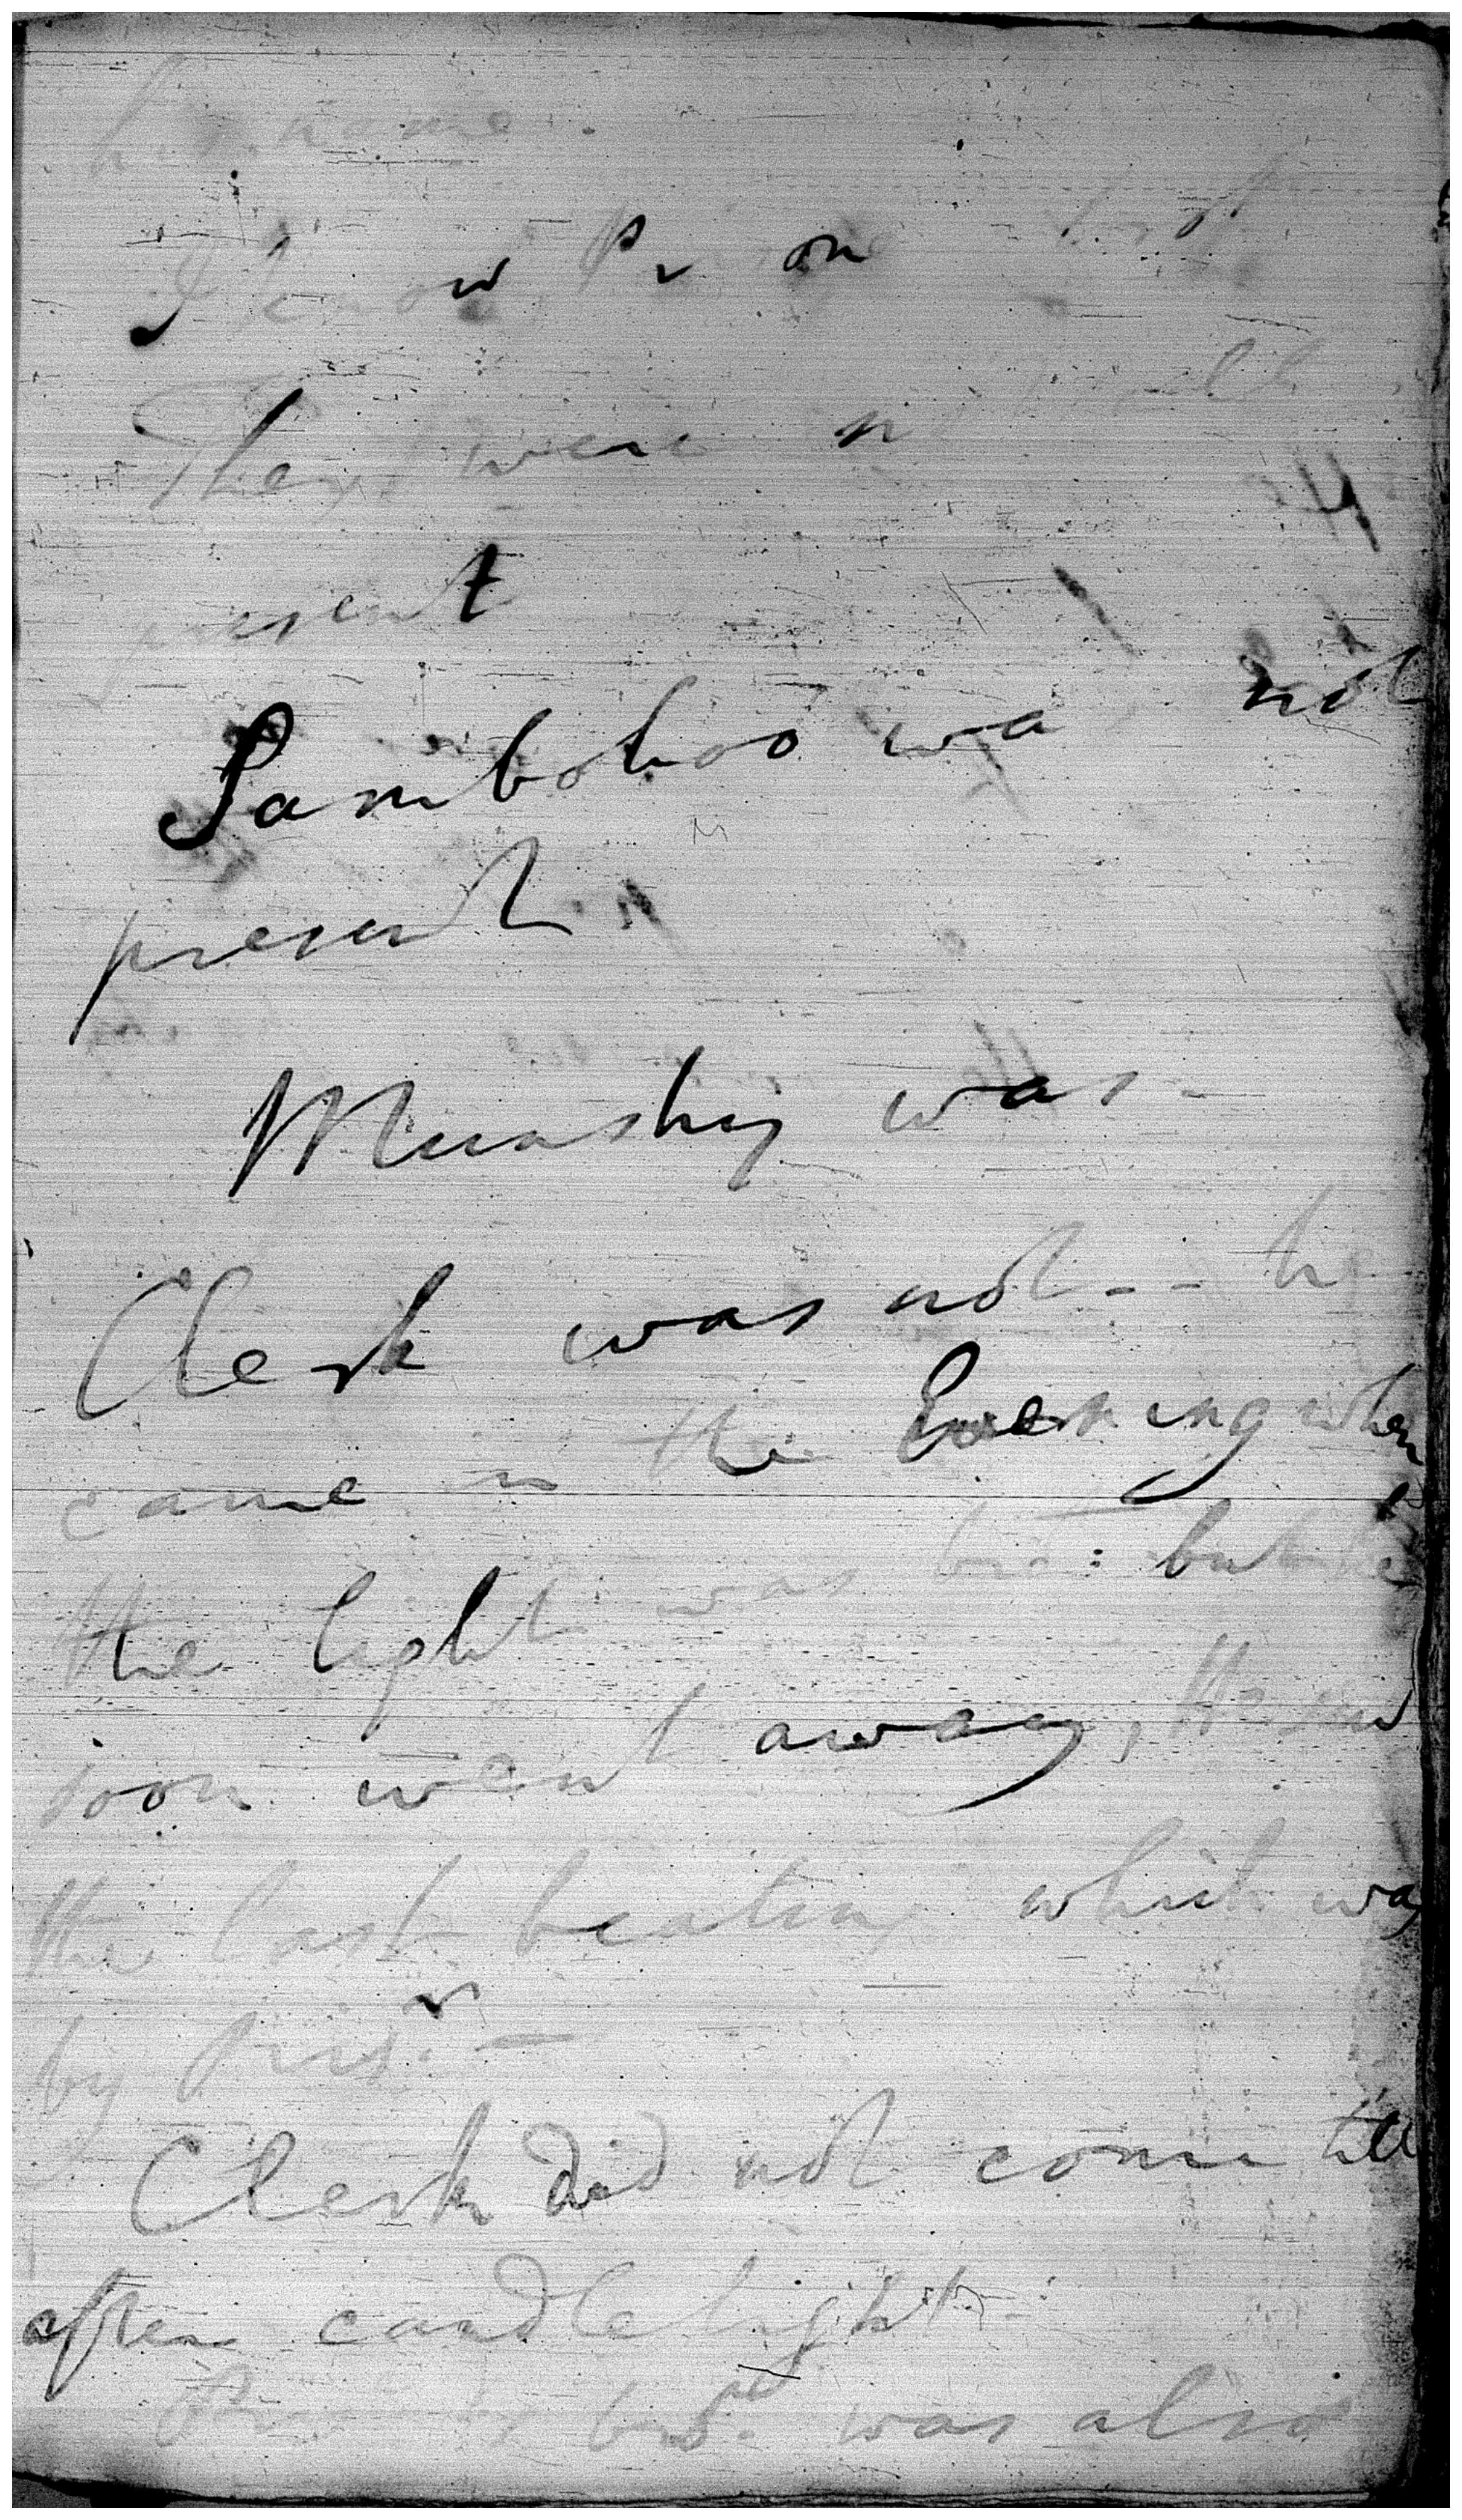 his name.
I know Pr one
They were n
present
Samboboo wa not
present.
Munshy was -
Clerk was not - - he
came in the Evening when
the light was : but he
soon went away,
the last beating which was
by Prisr. —
Clerk did not come till
after candlelight
was also